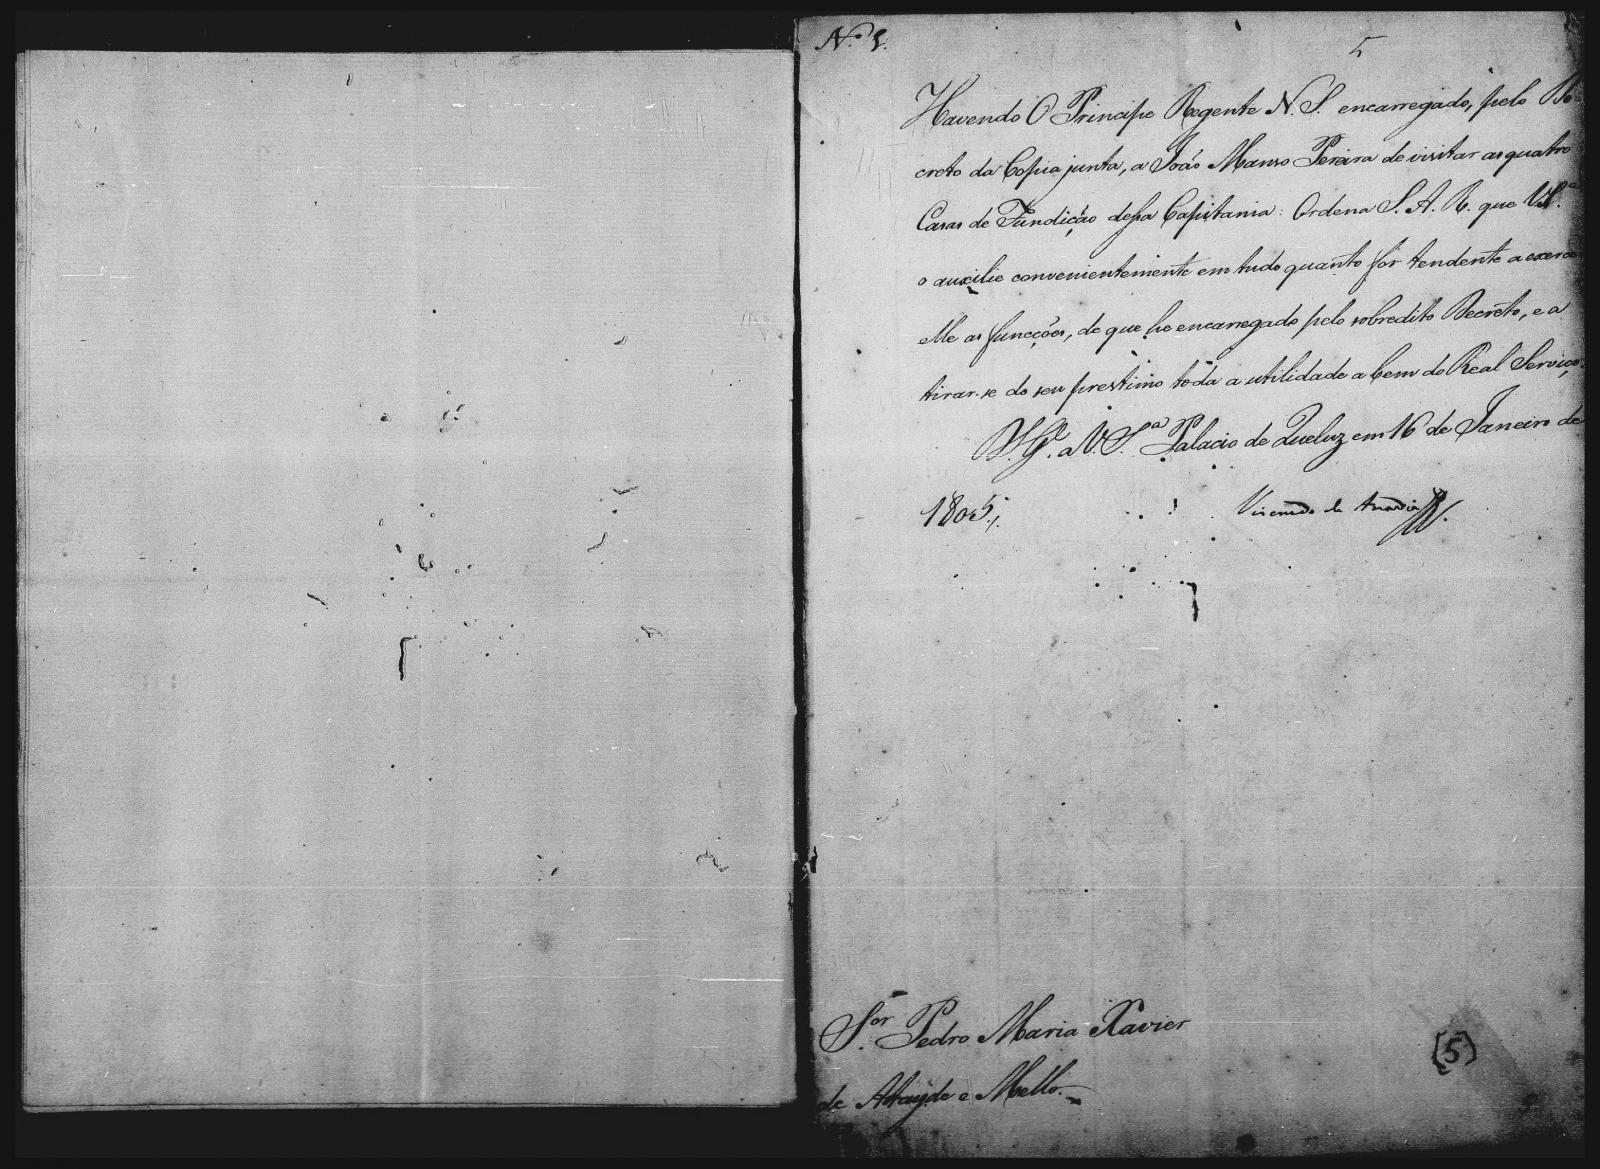 N.º 5.
5
Havendo O Principe Regente N. S. encarregado, pelo De-
creto da Copia junta, a João Manso Pereira de visitar as quatro
Casas de Fundição dessa Capitania: Ordena S. A. R. que V. S.ª
o auxilie convenientemente em tudo quanto for tendente a exercer
elle as funcções, de que he encarregado pelo sobredito Decreto, e a
tirar-se do seu prestimo toda a utilidade a bem do Real Serviço.
D. G.e a V. S.ª Palacio de Queluz em 16 de Janeiro de
1805./.
Visconde de Anadia
S.or Pedro Maria Xavier
de Atayde e Mello.
(5)